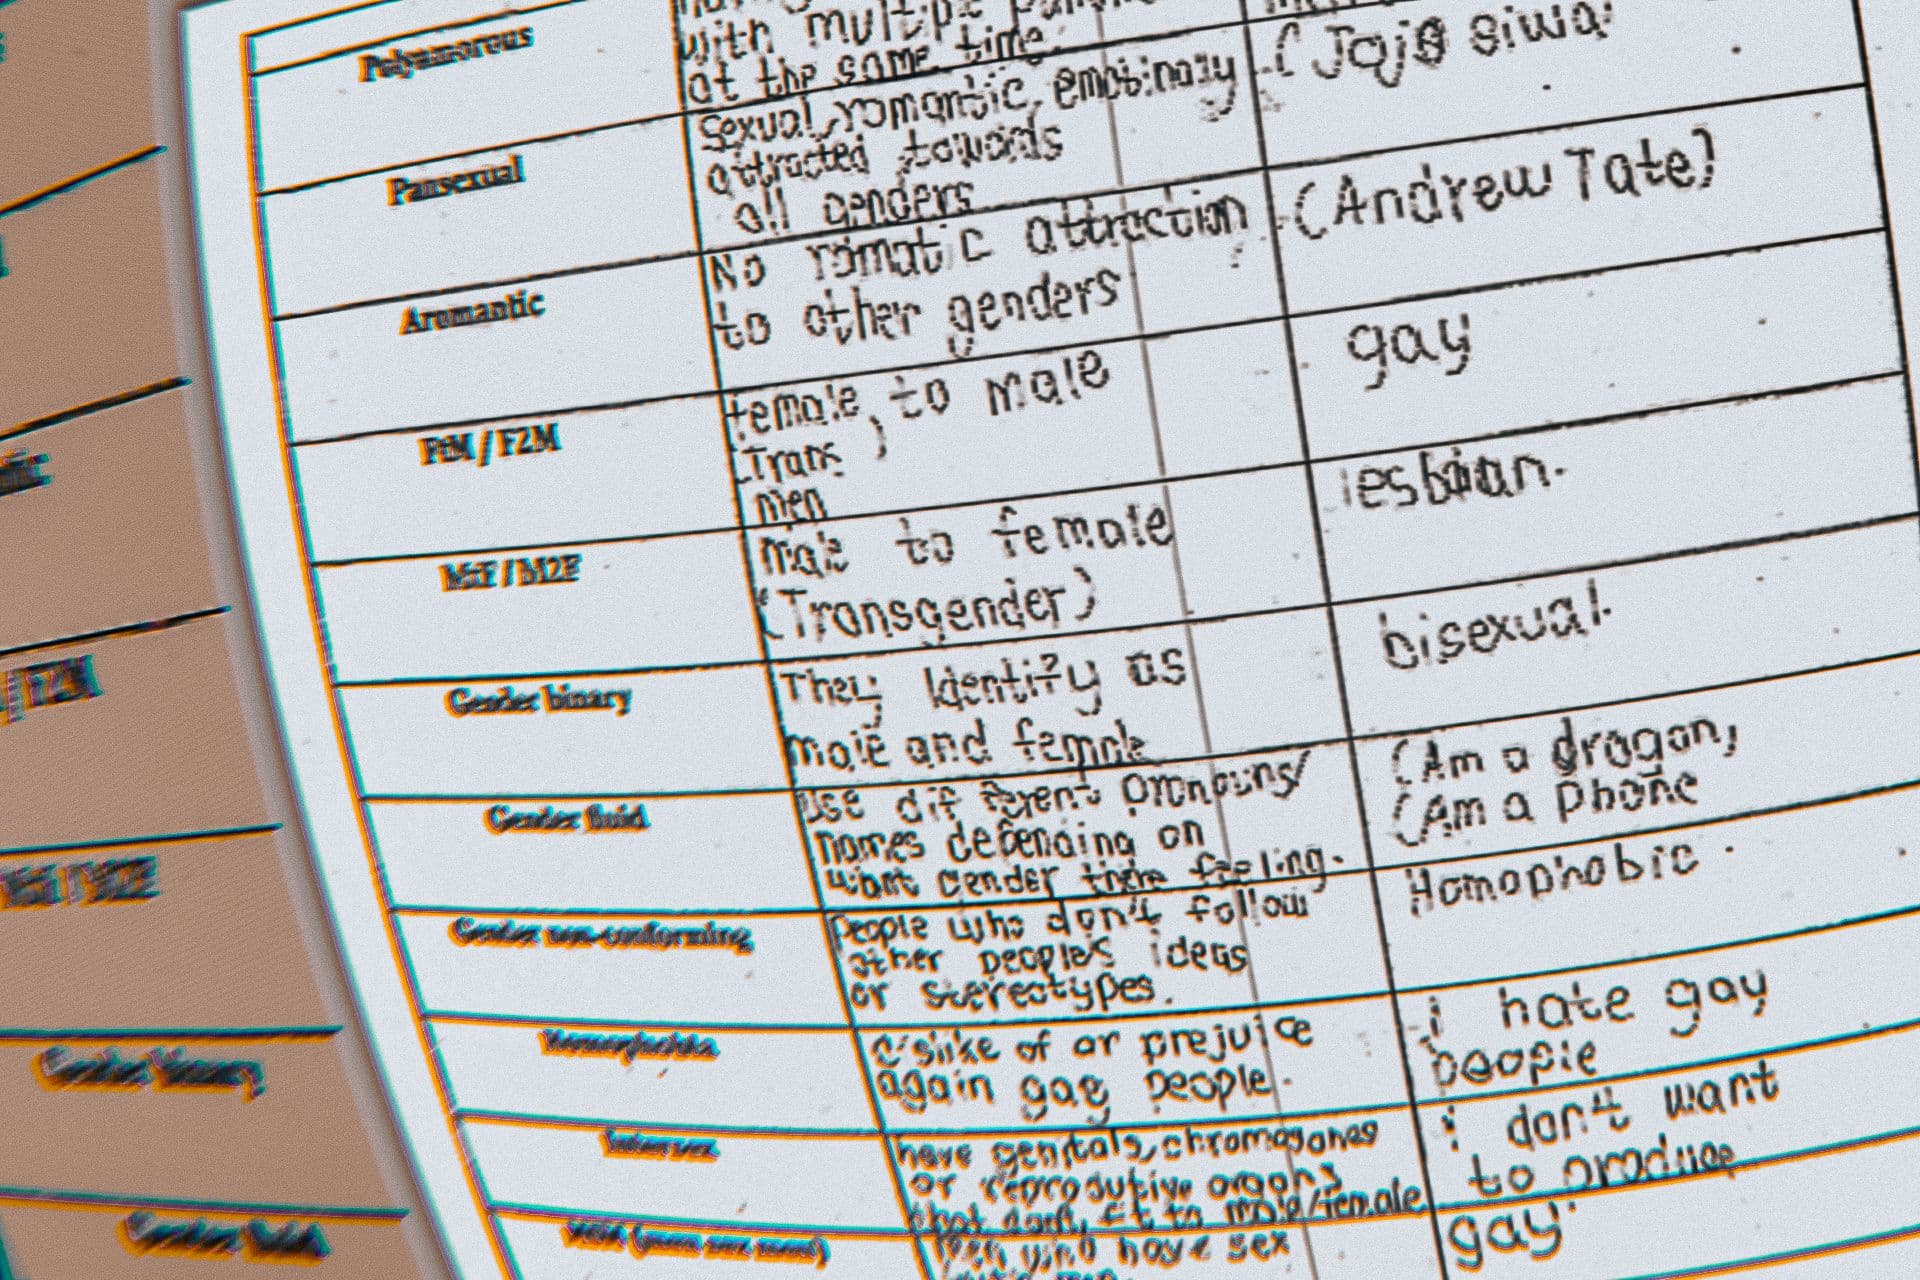 Polyamorous
with multiple
at the same time.
(Jojo siwa)
Pansexual
Sexual, romantic, emotionaly
attracted towards
all genders
(Andrew Tate)
Aromantic
No romatic attraction
to other genders
gay
FtM / F2M
female, to male
(Trans)
men
lesbian.
MtF / M2F
male to female
(Transgender)
bisexual.
Gender binary
They Identify as
male and female
(Am a dragon,
(Am a phone
Gender fluid
use different pronouns/
names depending on
what gender there feeling.
Homophobic.
Gender non-conforming
People who don't follow
other people's ideas
or stereotypes.
i hate gay
people
Homophobia
dislike of or prejuice
again gay people.
i don't want
to produce
Intersex
have genitals, chromosones
or reprodutive organs
that don't fit to male/female
gay
MSM (men sex men)
Men who have sex